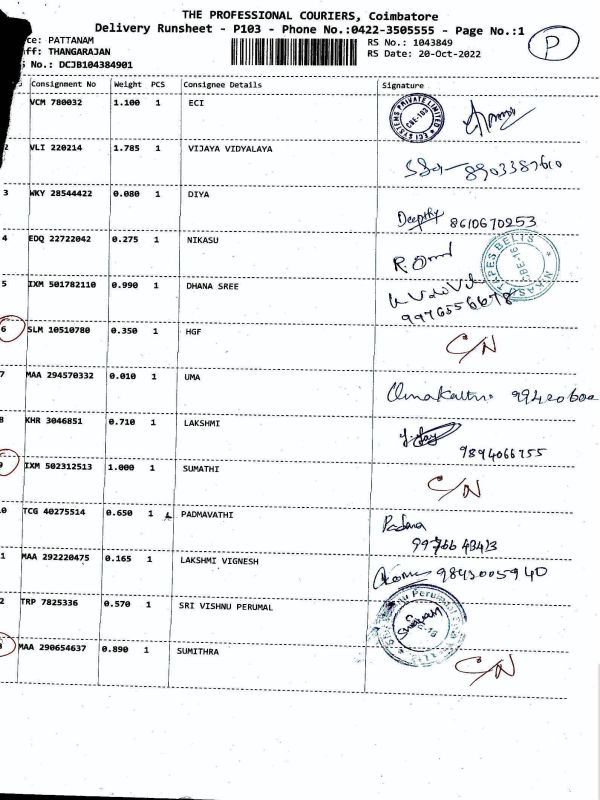 THE PROFESSIONAL COURIERS, Coimbatore
Delivery Runsheet - P103 - Phone No.:0422-3505555 - Page No.:1
ce: PATTANAM RS No.: 1043849
ff: THANGARAJAN RS Date: 20-Oct-2022
No.: DCJB104384901
P
Consignment No Weight PCS Consignee Details Signature
VCM 780032 1.100 1 ECI
ECI SYSTEMS PRIVATE LIMITED CBE-103
2 VLI 220214 1.785 1 VIJAYA VIDYALAYA
8903387610
3 WKY 28544422 0.080 1 DIYA
Deepthy 8610670253
4 EDQ 22722042 0.275 1 NIKASU
TAPES BELTS
5 IXM 501782110 0.990 1 DHANA SREE
9976556678
6 SLM 10510780 0.350 1 HGF C/N
7 MAA 294570332 0.010 1 UMA
99420600
8 KHR 3046851 0.710 1 LAKSHMI
9894066755
9 IXM 502312513 1.000 1 SUMATHI C/N
0 TCG 40275514 0.650 1 PADMAVATHI
Padma
99766 43413
1 MAA 292220475 0.165 1 LAKSHMI VIGNESH
9843005940
2 TRP 7825336 0.570 1 SRI VISHNU PERUMAL
Perumal
3 MAA 290654637 0.890 1 SUMITHRA C/N